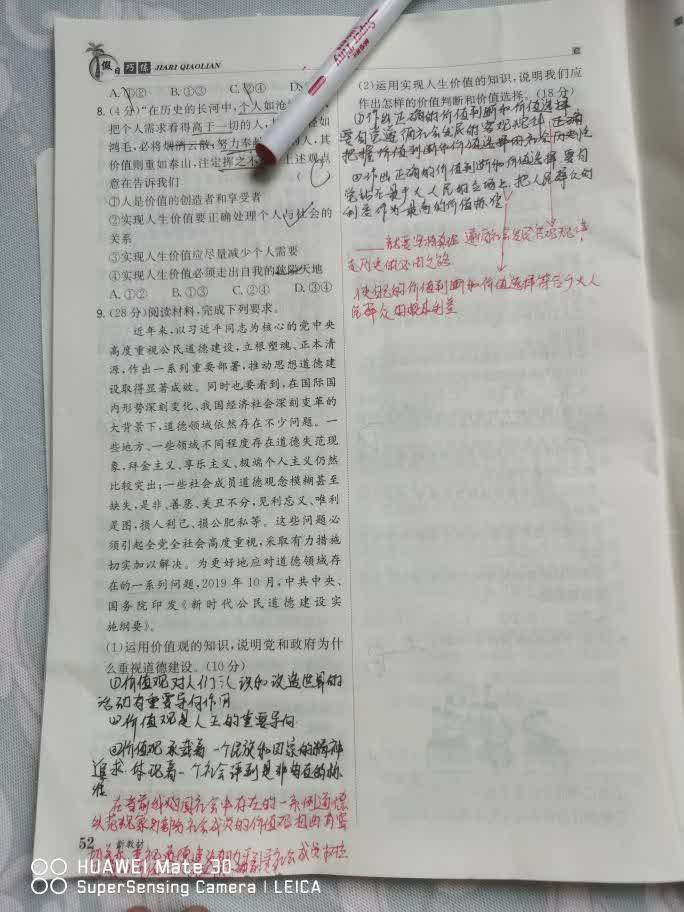 假日巧练 JIARI QIAOLIAN
A.①② B.①③ C.②④ D.
8.(4分)“在历史的长河中,个人如沧
把个人需求看得高于一切的人,其 如
鸿毛,必将烟消云散;努力奉 的人,其
价值则重如泰山,注定挥之不 上述观点
意在告诉我们 (
①人是价值的创造者和享受者
②实现人生价值要正确处理个人与社会的
关系
③实现人生价值应尽量减少个人需要
④实现人生价值必须走出自我的 天地
A.①② B.①③ C.②④ D.③④
9.(28分)阅读材料,完成下列要求。
近年来,以习近平同志为核心的党中央
高度重视公民道德建设,立根塑魂、正本清
源,作出一系列重要部署,推动思想道德建
设取得显著成效。同时也要看到,在国际国
内形势深刻变化、我国经济社会深刻变革的
大背景下,道德领域依然存在不少问题。一
些地方、一些领域不同程度存在道德失范现
象,拜金主义、享乐主义、极端个人主义仍然
比较突出;一些社会成员道德观念模糊甚至
缺失,是非、善恶、美丑不分,见利忘义、唯利
是图,损人利己、损公肥私等。这些问题必
须引起全党全社会高度重视,采取有力措施
切实加以解决。为更好地应对道德领域存
在的一系列问题,2019年10月,中共中央、
国务院印发《新时代公民道德建设实
施纲要》。
(1)运用价值观的知识,说明党和政府为什
么重视道德建设。(10分)
①价值观对人们认识和改造世界的
活动有重要导向作用
②价值观是人生的重要导向
③价值观承载着一个民族和国家的精神
追求,体现着一个社会评判是非曲直的标
准
在当前我国社会中存在的一系列道德
失范现象与部分社会成员的价值观扭曲有密
切关系
52 新教材
(2)运用实现人生价值的知识,说明我们应
作出怎样的价值判断和价值选择。(18分)
①作出正确的价值判断和价值选择
要自觉遵循社会发展的客观规律 正确
把握价值判断和价值选择的社会历史性
②作出正确的价值判断和价值选择 要自
觉站在最广大人民的立场上,把人民群众的
利益作为最高的价值标准
就要坚持真理 遵循社会发展客观规律,
走历史的必由之路
使自己的价值判断和价值选择符合广大人
民群众的根本利益
HUAWEI Mate 30
SuperSensing Camera | LEICA